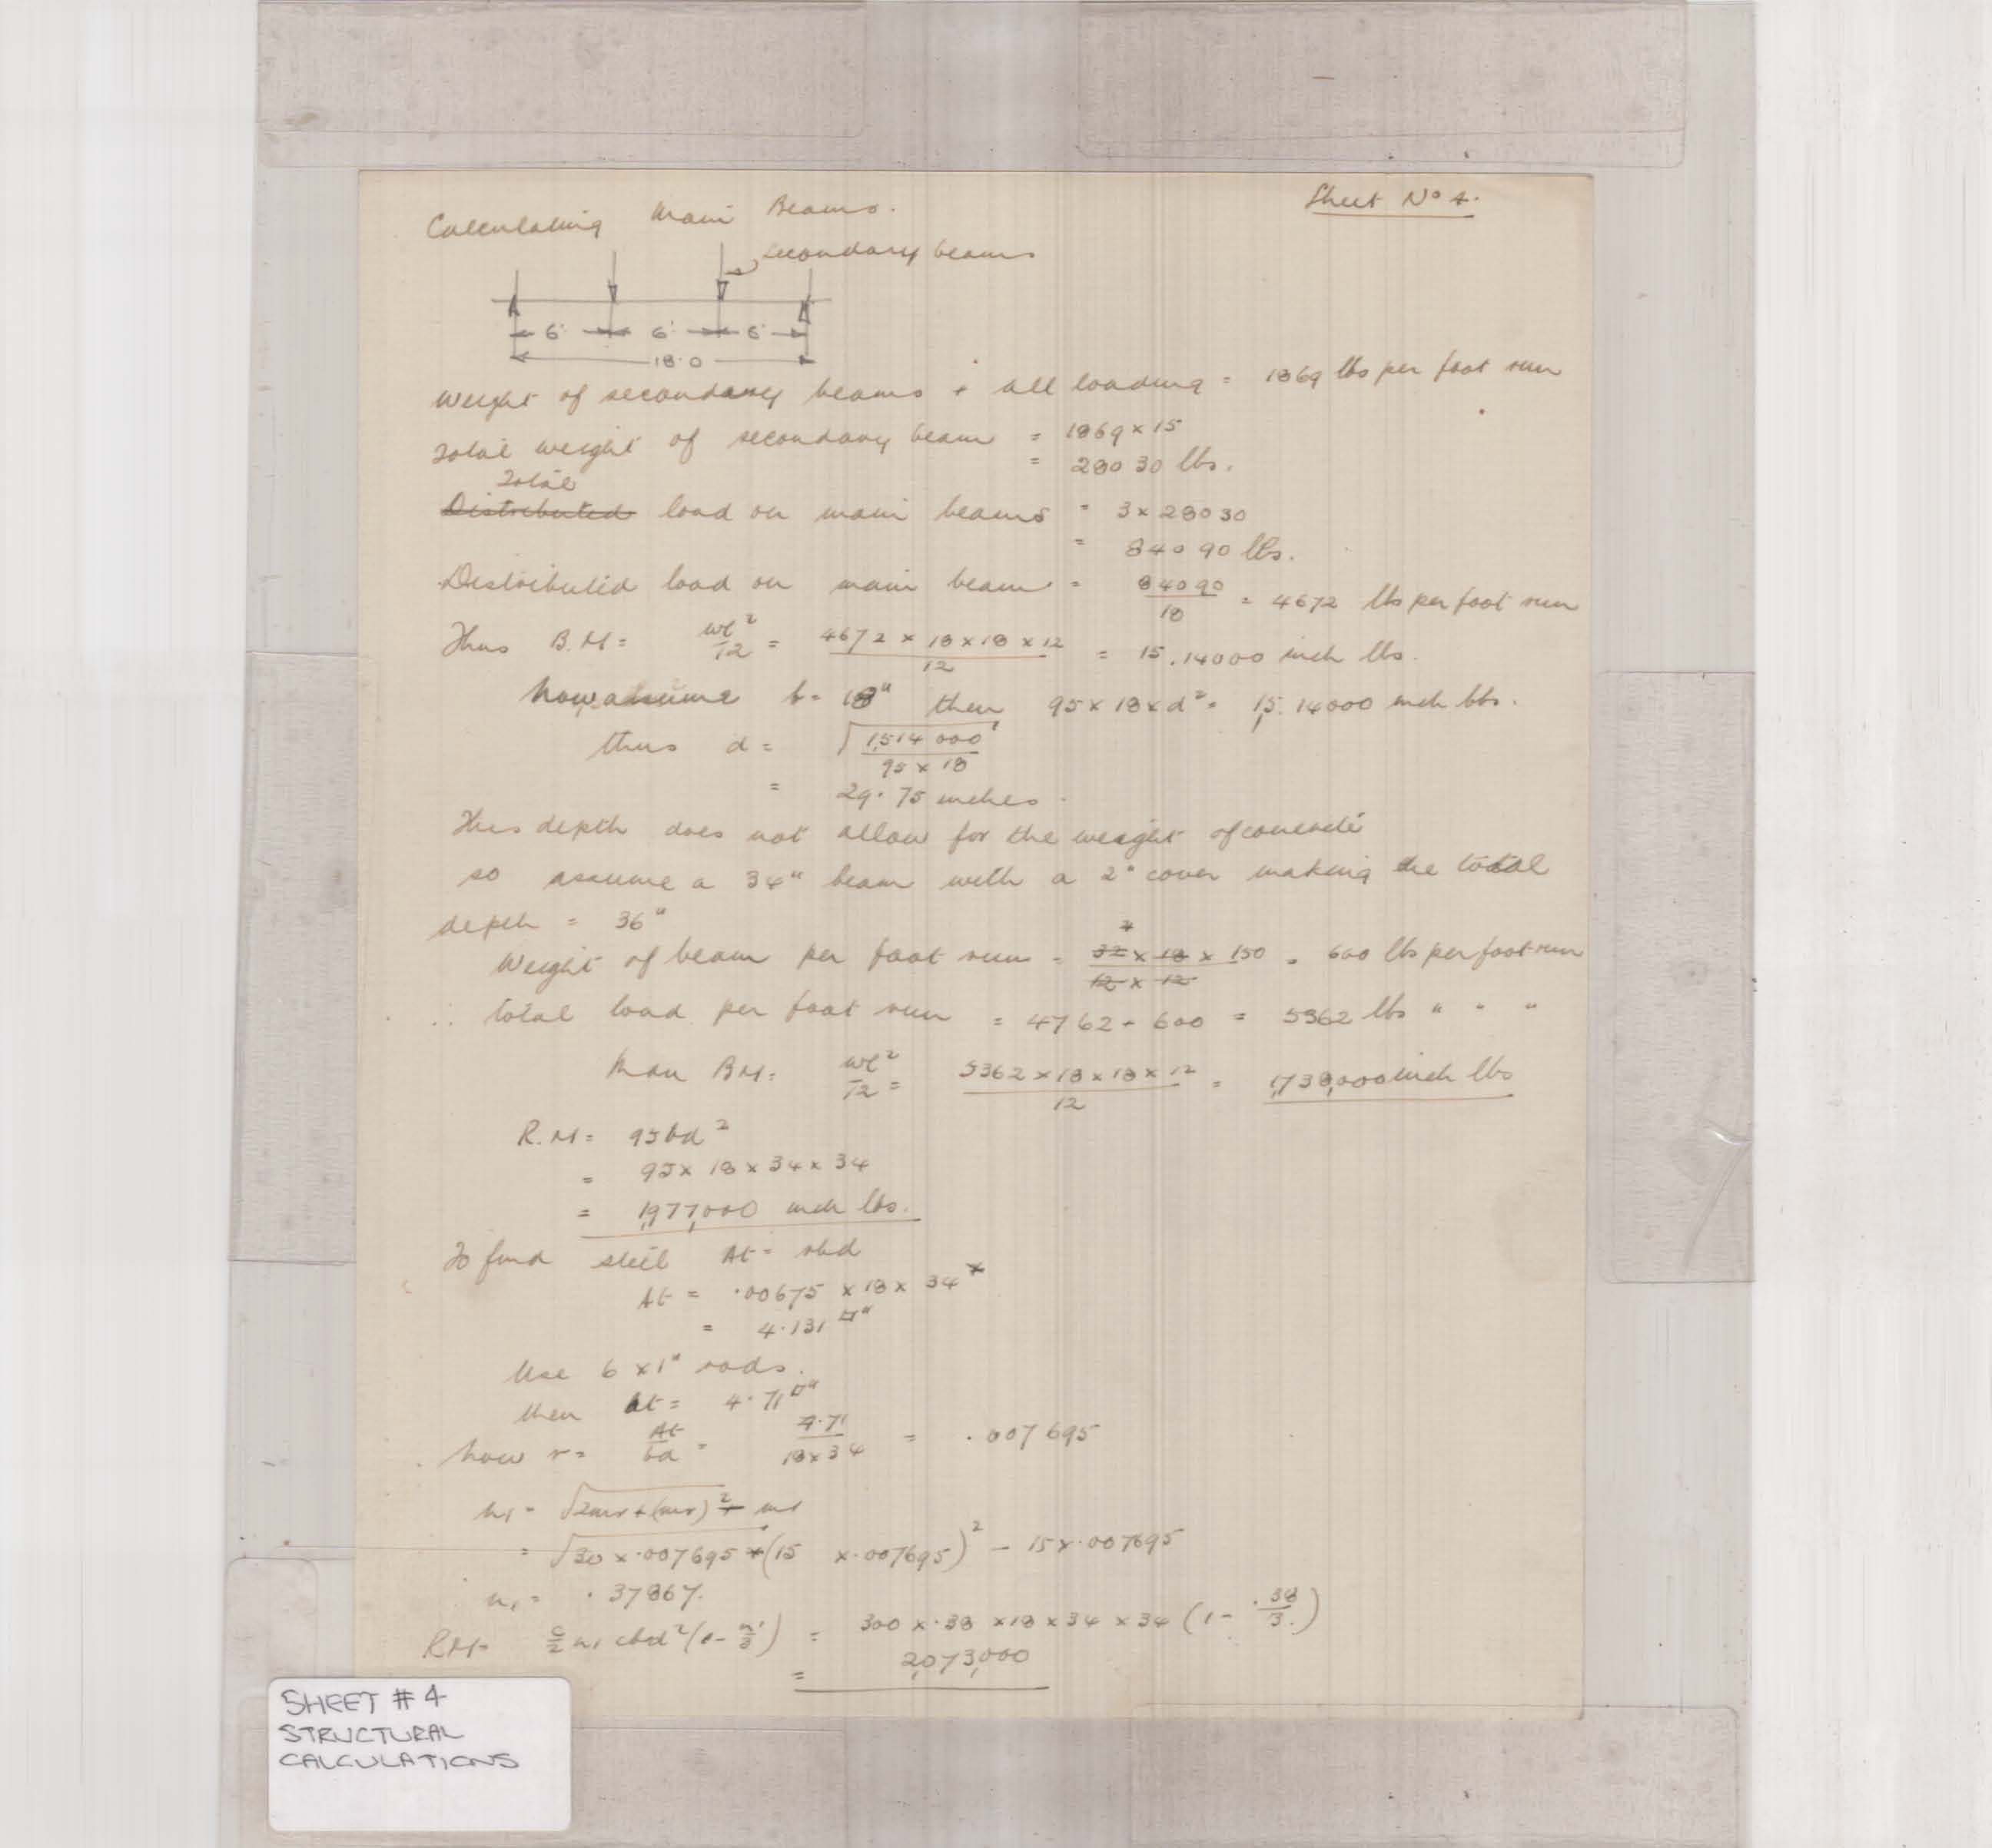 Sheet No 4.
Calculating Main Beams.
secondary beams
6' 6' 6'
18.0
Weight of secondary beams + all loading = 1869 lbs per foot run
Total weight of secondary beam = 1869 x 15
= 28030 lbs.
Total
Distributed load on main beams = 3 x 28030
= 84090 lbs.
Distributed load on main beam = 84090/18 = 4672 lbs per foot run
Thus B.M = wl²/12 = 4672 x 18 x 18 x 12/12 = 15.14000 inch lbs.
Now assume b = 18" then 95 x 18 x d² = 15.14000 inch lbs.
thus d = √1,514000/95 x 18
= 29.75 inches.
This depth does not allow for the weight of concrete
so assume a 34" beam with a 2" cover making the total
depth = 36"
Weight of beam per foot run = 32 x 18 x 150/12 x 12 = 600 lbs per foot run
∴ total load per foot run = 4762 + 600 = 5362 lbs " " "
Max BM = wl²/12 = 5362 x 18 x 18 x 12/12 = 1,738,000 inch lbs
R.M = 95bd²
= 95 x 18 x 34 x 34
= 1,977,000 inch lbs.
To find steel At = rbd
At = .00675 x 18 x 34
= 4.131 □"
Use 6 x 1" rods.
then At = 4.71 □"
Now r = At/bd = 4.71/18 x 34 = .007695
n₁ = √2mr + (mr)² - mr
= √30 x .007695 + (15 x .007695)² - 15 x .007695
n₁ = .37867.
RM = c/2 n₁ cbd² (1 - n₁/3) = 300 x .38 x 18 x 34 x 34 (1 - .38/3.)
= 2,073,000
SHEET # 4
STRUCTURAL
CALCULATIONS